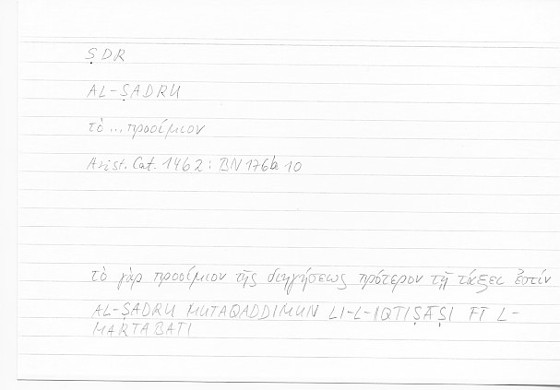 ṢDR
AL-ṢADRU
τὸ...προοίμιον
Arist. Cat. 1462 : BN 176b 10
τὸ γὰρ προοίμιον τῆς διηγήσεως πρότερον τῇ τάξει ἐστίν
AL-ṢADRU MUTAQADDIMUN LI-L-IQTIṢĀṢI FĪ L-
MARTABATI